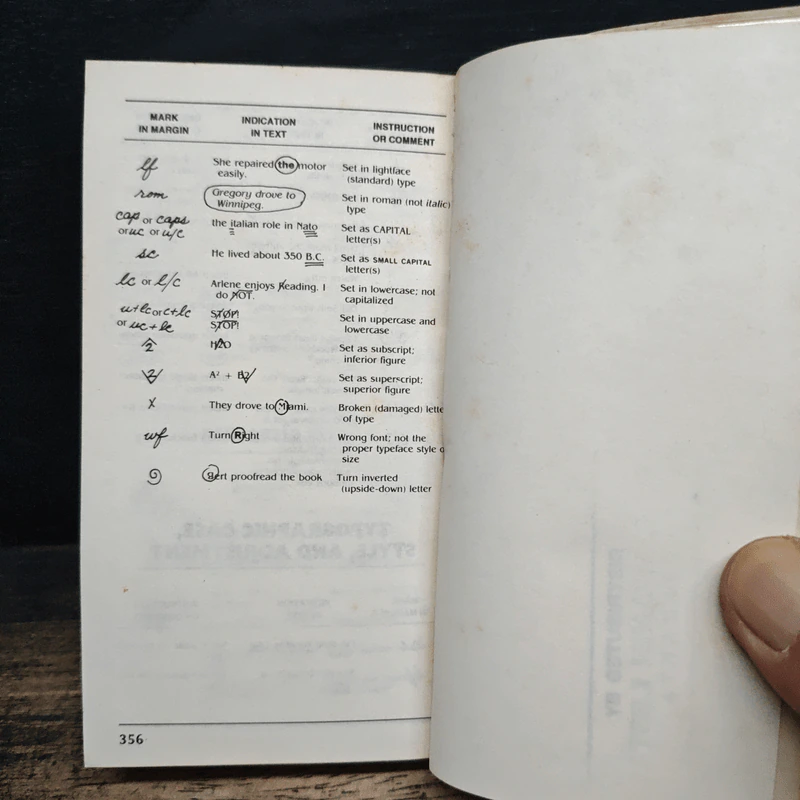 MARK INDICATION INSTRUCTION
IN MARGIN IN TEXT OR COMMENT
lf She repaired the motor Set in lightface
easily. (standard) type
rom Gregory drove to Set in roman (not italic)
Winnipeg. type
cap or caps the italian role in Nato Set as CAPITAL
or uc or u/c letter(s)
sc He lived about 350 B.C. Set as SMALL CAPITAL
letter(s)
lc or l/c Arlene enjoys Reading. I Set in lowercase; not
do NOT. capitalized
u+lc or c+lc STOP! Set in uppercase and
or uc+lc STOP! lowercase
2 H2O Set as subscript;
inferior figure
2 A² + B2 Set as superscript;
superior figure
x They drove to Miami. Broken (damaged) lette
of type
wf Turn Right Wrong font; not the
proper typeface style o
size
9 Bert proofread the book Turn inverted
(upside-down) letter
TYPOGRAPHIC CASE,
STYLE, AND ADJUSTMENT
356